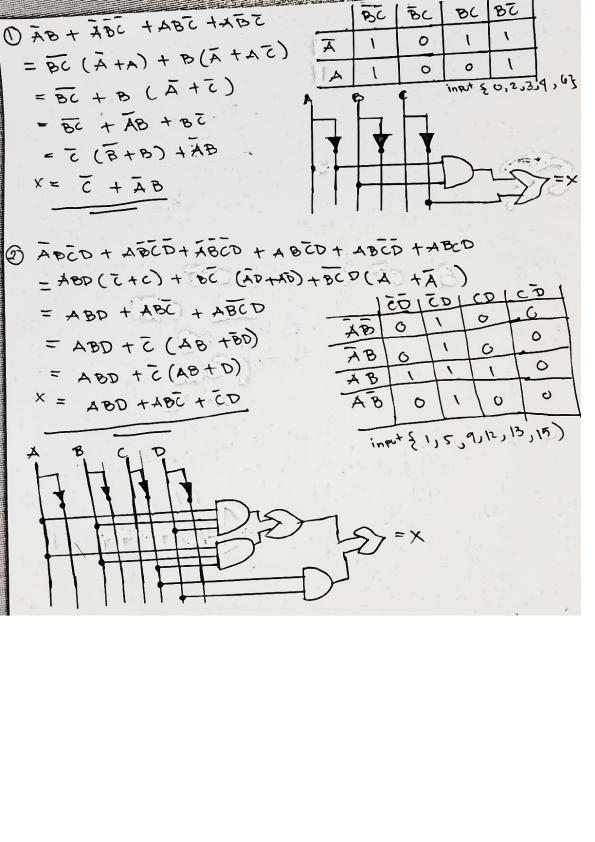 ① A̅B + A̅B̅C̅ + ABC̅ + AB̅C̅
= B̅C̅ (A̅+A) + B(A̅ + AC̅)
= B̅C̅ + B (A̅ + C̅)
= B̅C̅ + A̅B + BC̅
= C̅ (B̅+B) + A̅B
X = C̅ + A̅B
B̅C̅ B̅C BC BC̅
A̅ 1 0 1 1
A 1 0 0 1
input { 0,2,3,4,6}
A B C
=X
② A̅BC̅D + AB̅C̅D + A̅B̅C̅D + ABC̅D + ABC̅D̅ + ABCD
= ABD (C̅+C) + BC̅ (A̅D+AD̅) + B̅C̅D (A + A̅)
= ABD + ABC̅ + AB̅C̅D
= ABD + C̅ (AB + B̅D)
= ABD + C̅ (AB + D)
X = ABD + ABC̅ + C̅D
C̅D̅ C̅D CD CD̅
A̅B̅ 0 1 0 0
A̅B 0 1 0 0
AB 1 1 1 0
AB̅ 0 1 0 0
input { 1, 5, 9, 12, 13, 15)
A B C D
= X